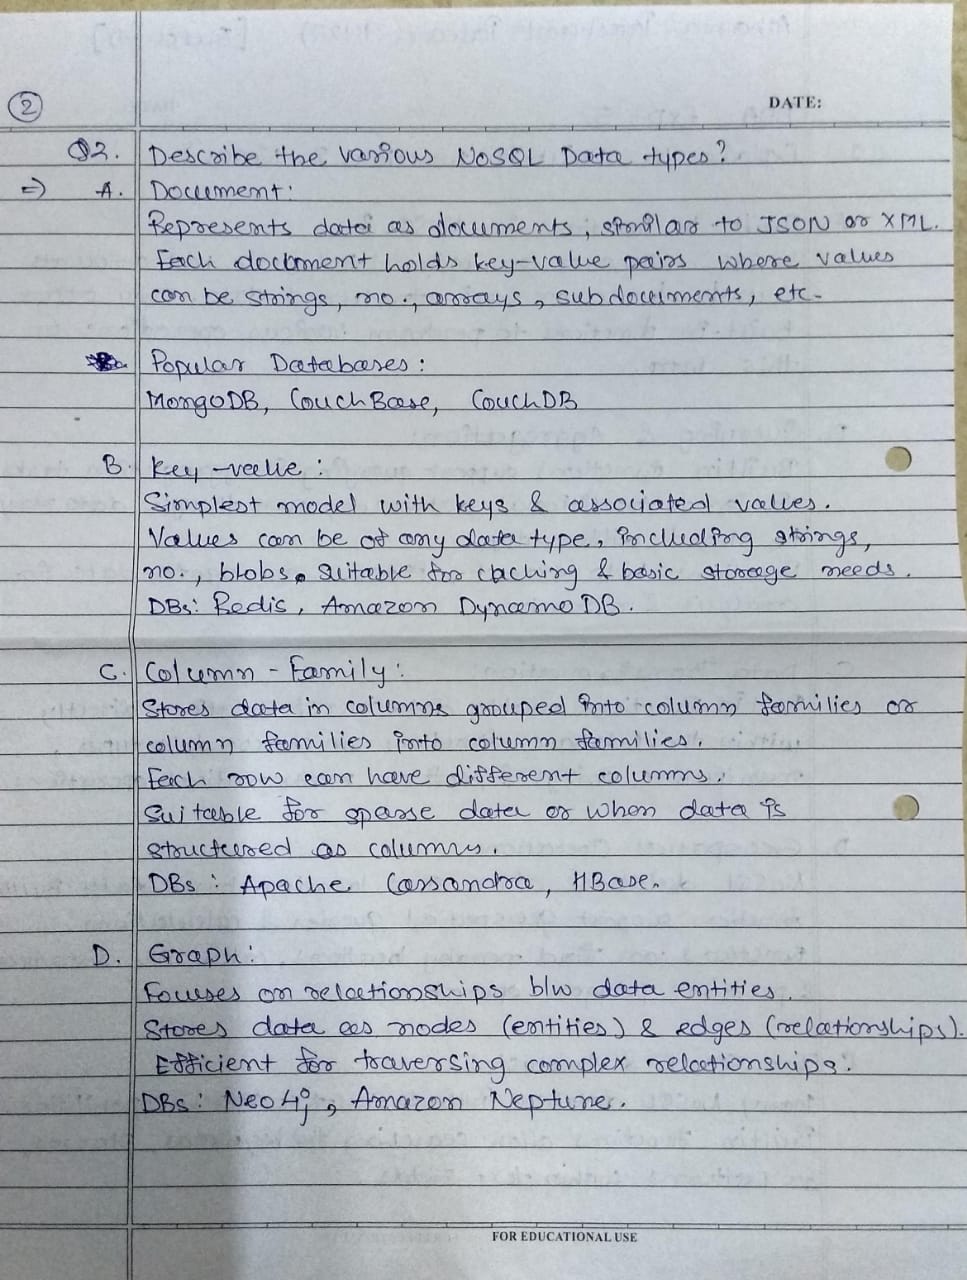 2
DATE:
Q2. Describe the various NoSQL Data types?
=> A. Document:
Represents data as documents, similar to JSON or XML.
Each document holds key-value pairs where values
can be strings, no., arrays, subdocuments, etc.
Popular Databases:
MongoDB, CouchBase, CouchDB
B. Key-value:
Simplest model with keys & associated values.
Values can be of any data type, including strings,
no., blobs. Suitable for caching & basic storage needs.
DBs: Redis, Amazon Dynamo DB.
C. Column-Family:
Stores data in columns grouped into column families or
column families into column families.
Each row can have different columns.
Suitable for sparse data or when data is
structured as columns.
DBs: Apache Cassandra, HBase.
D. Graph:
Focuses on relationships b/w data entities.
Stores data as nodes (entities) & edges (relationships).
Efficient for traversing complex relationships.
DBs: Neo4j, Amazon Neptune.
FOR EDUCATIONAL USE